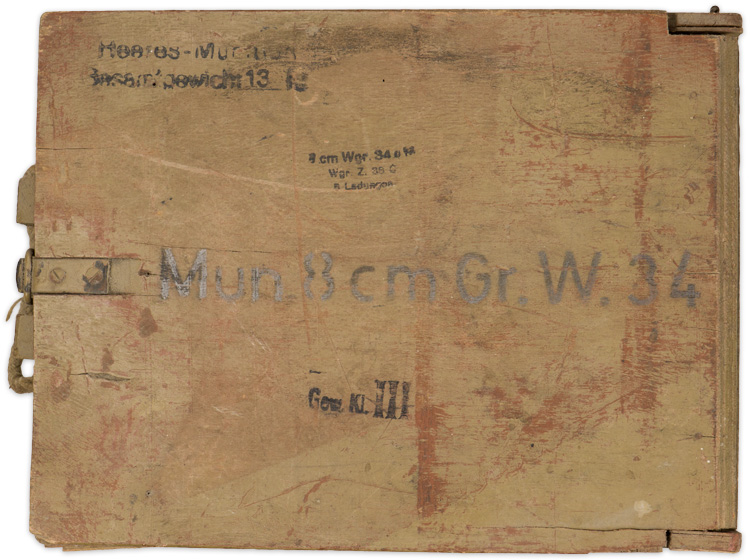 Heeres-Munition
Gesamtgewicht 13 kg
8 cm Wgr. 34
Wgr. Z. 38 C
6 Ladungen
Mun. 8 cm Gr. W. 34
Gew. Kl. III